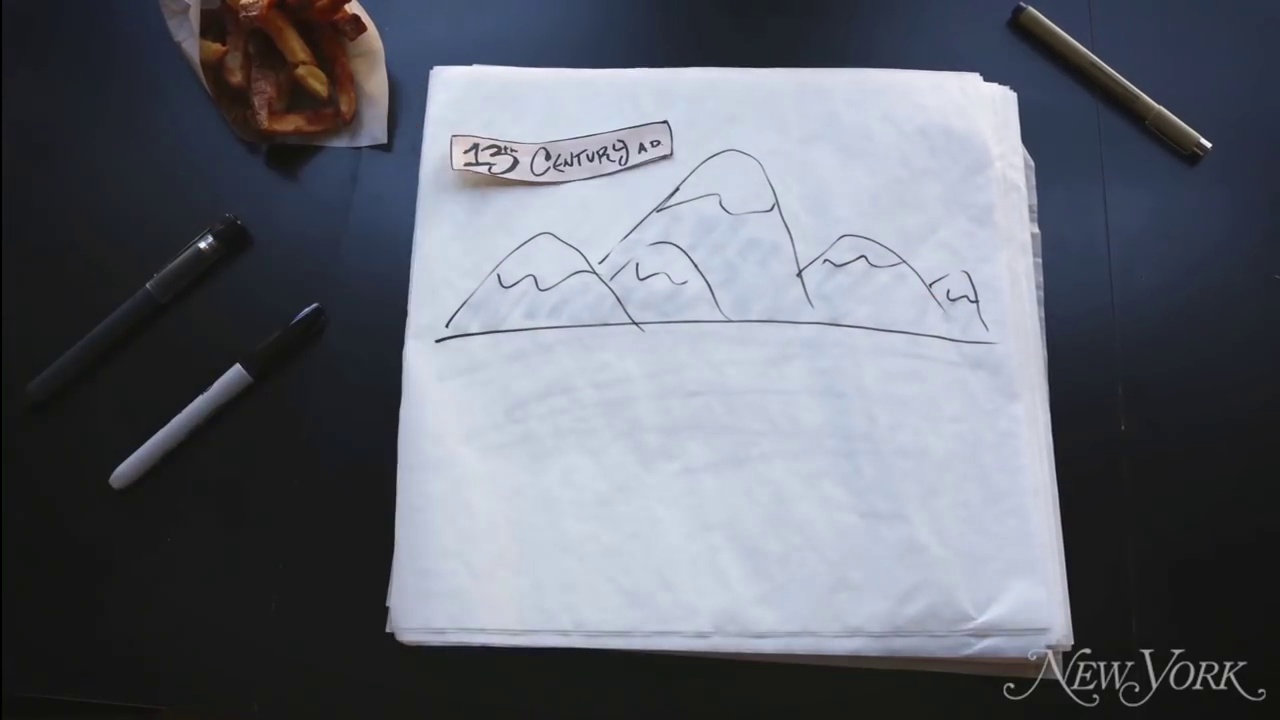 13th CENTURY AD.
NEW YORK